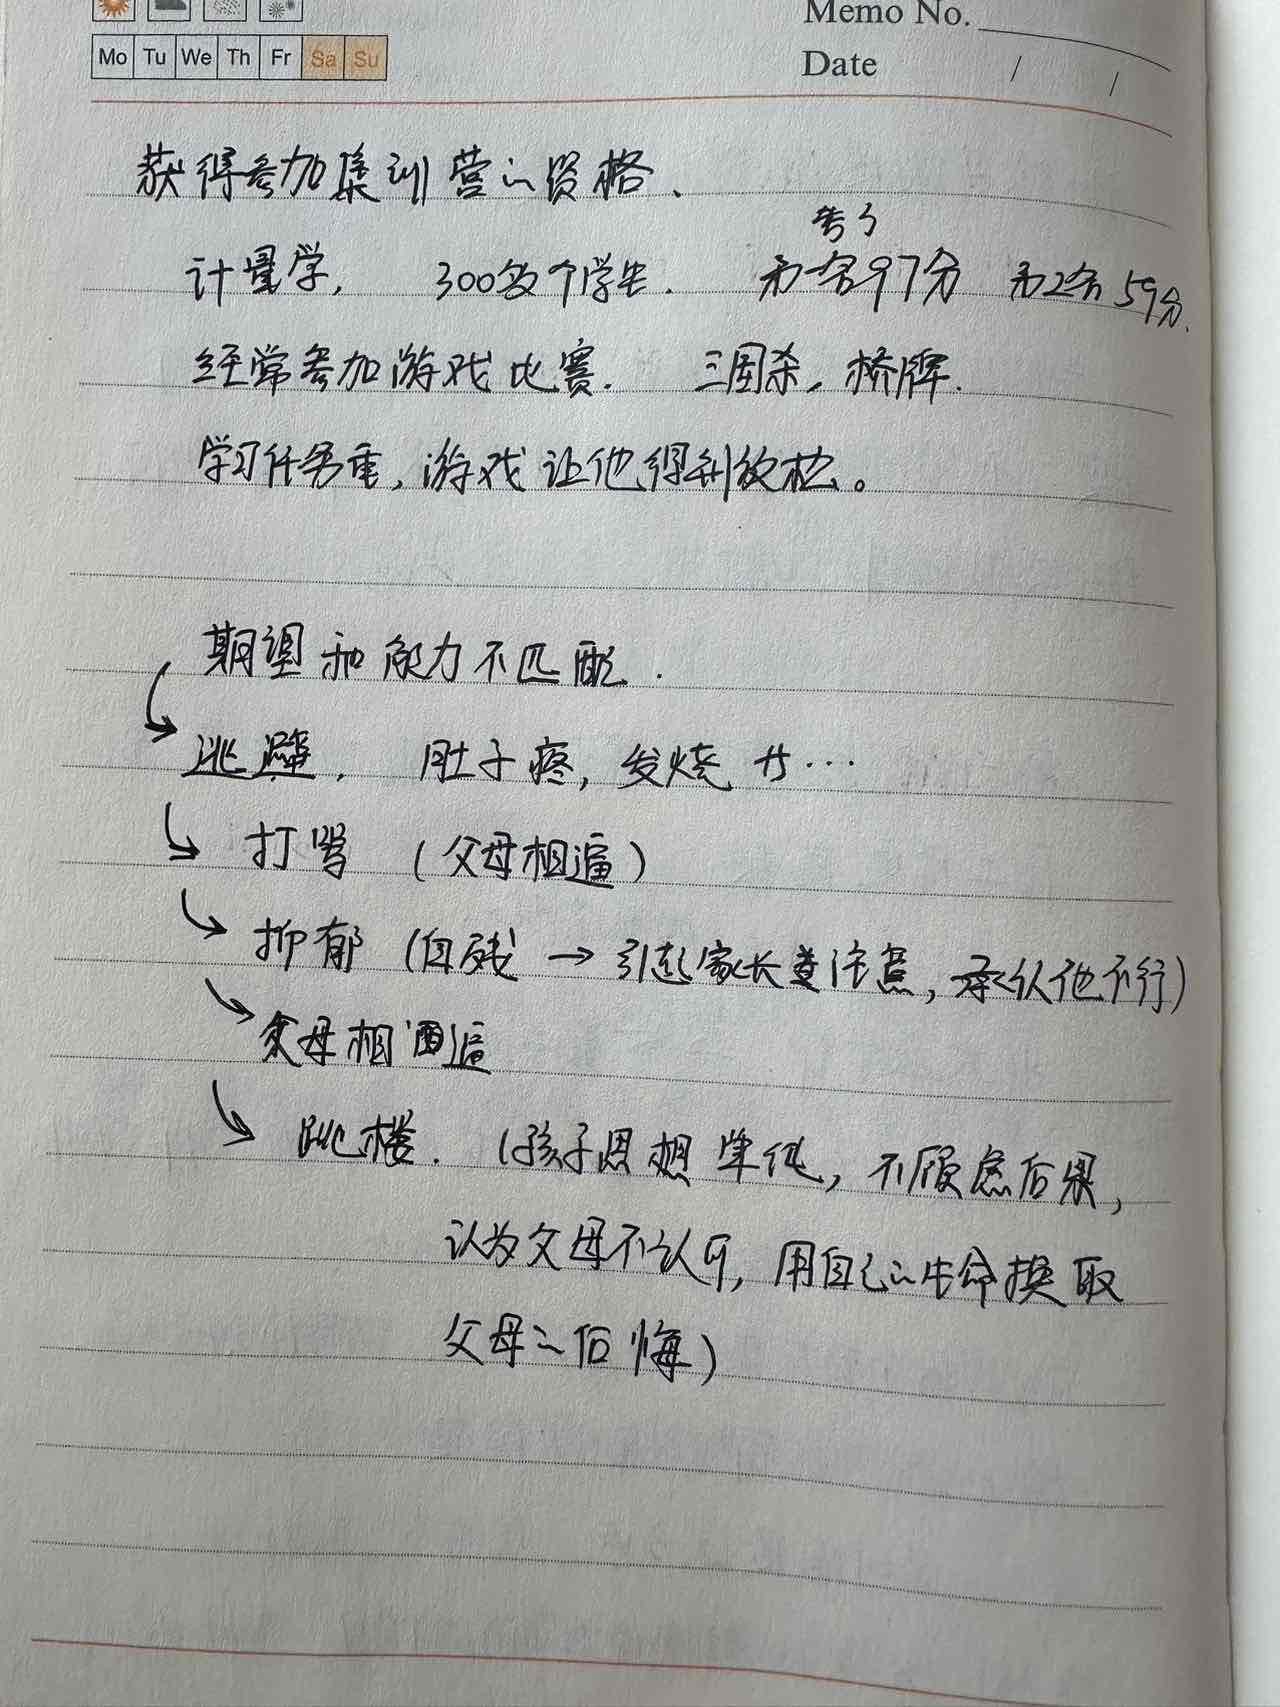 Memo No.
Mo Tu We Th Fr Sa Su
Date / /
获得参加集训营的资格、
考了
计量学, 300多个学生. 第一名97分 第2名59分.
经常参加游戏比赛. 三国杀, 桥牌.
学习任务重, 游戏让他得到放松。
期望和能力不匹配.
逃避. 肚子疼, 发烧 廿…
打骂 (父母相逼)
抑郁 (自残 → 引起家长注意, 承认他不行)
父母相逼
跳楼. (孩子思想单纯, 不顾虑后果,
认为父母不认可, 用自己的生命换取
父母的后悔)